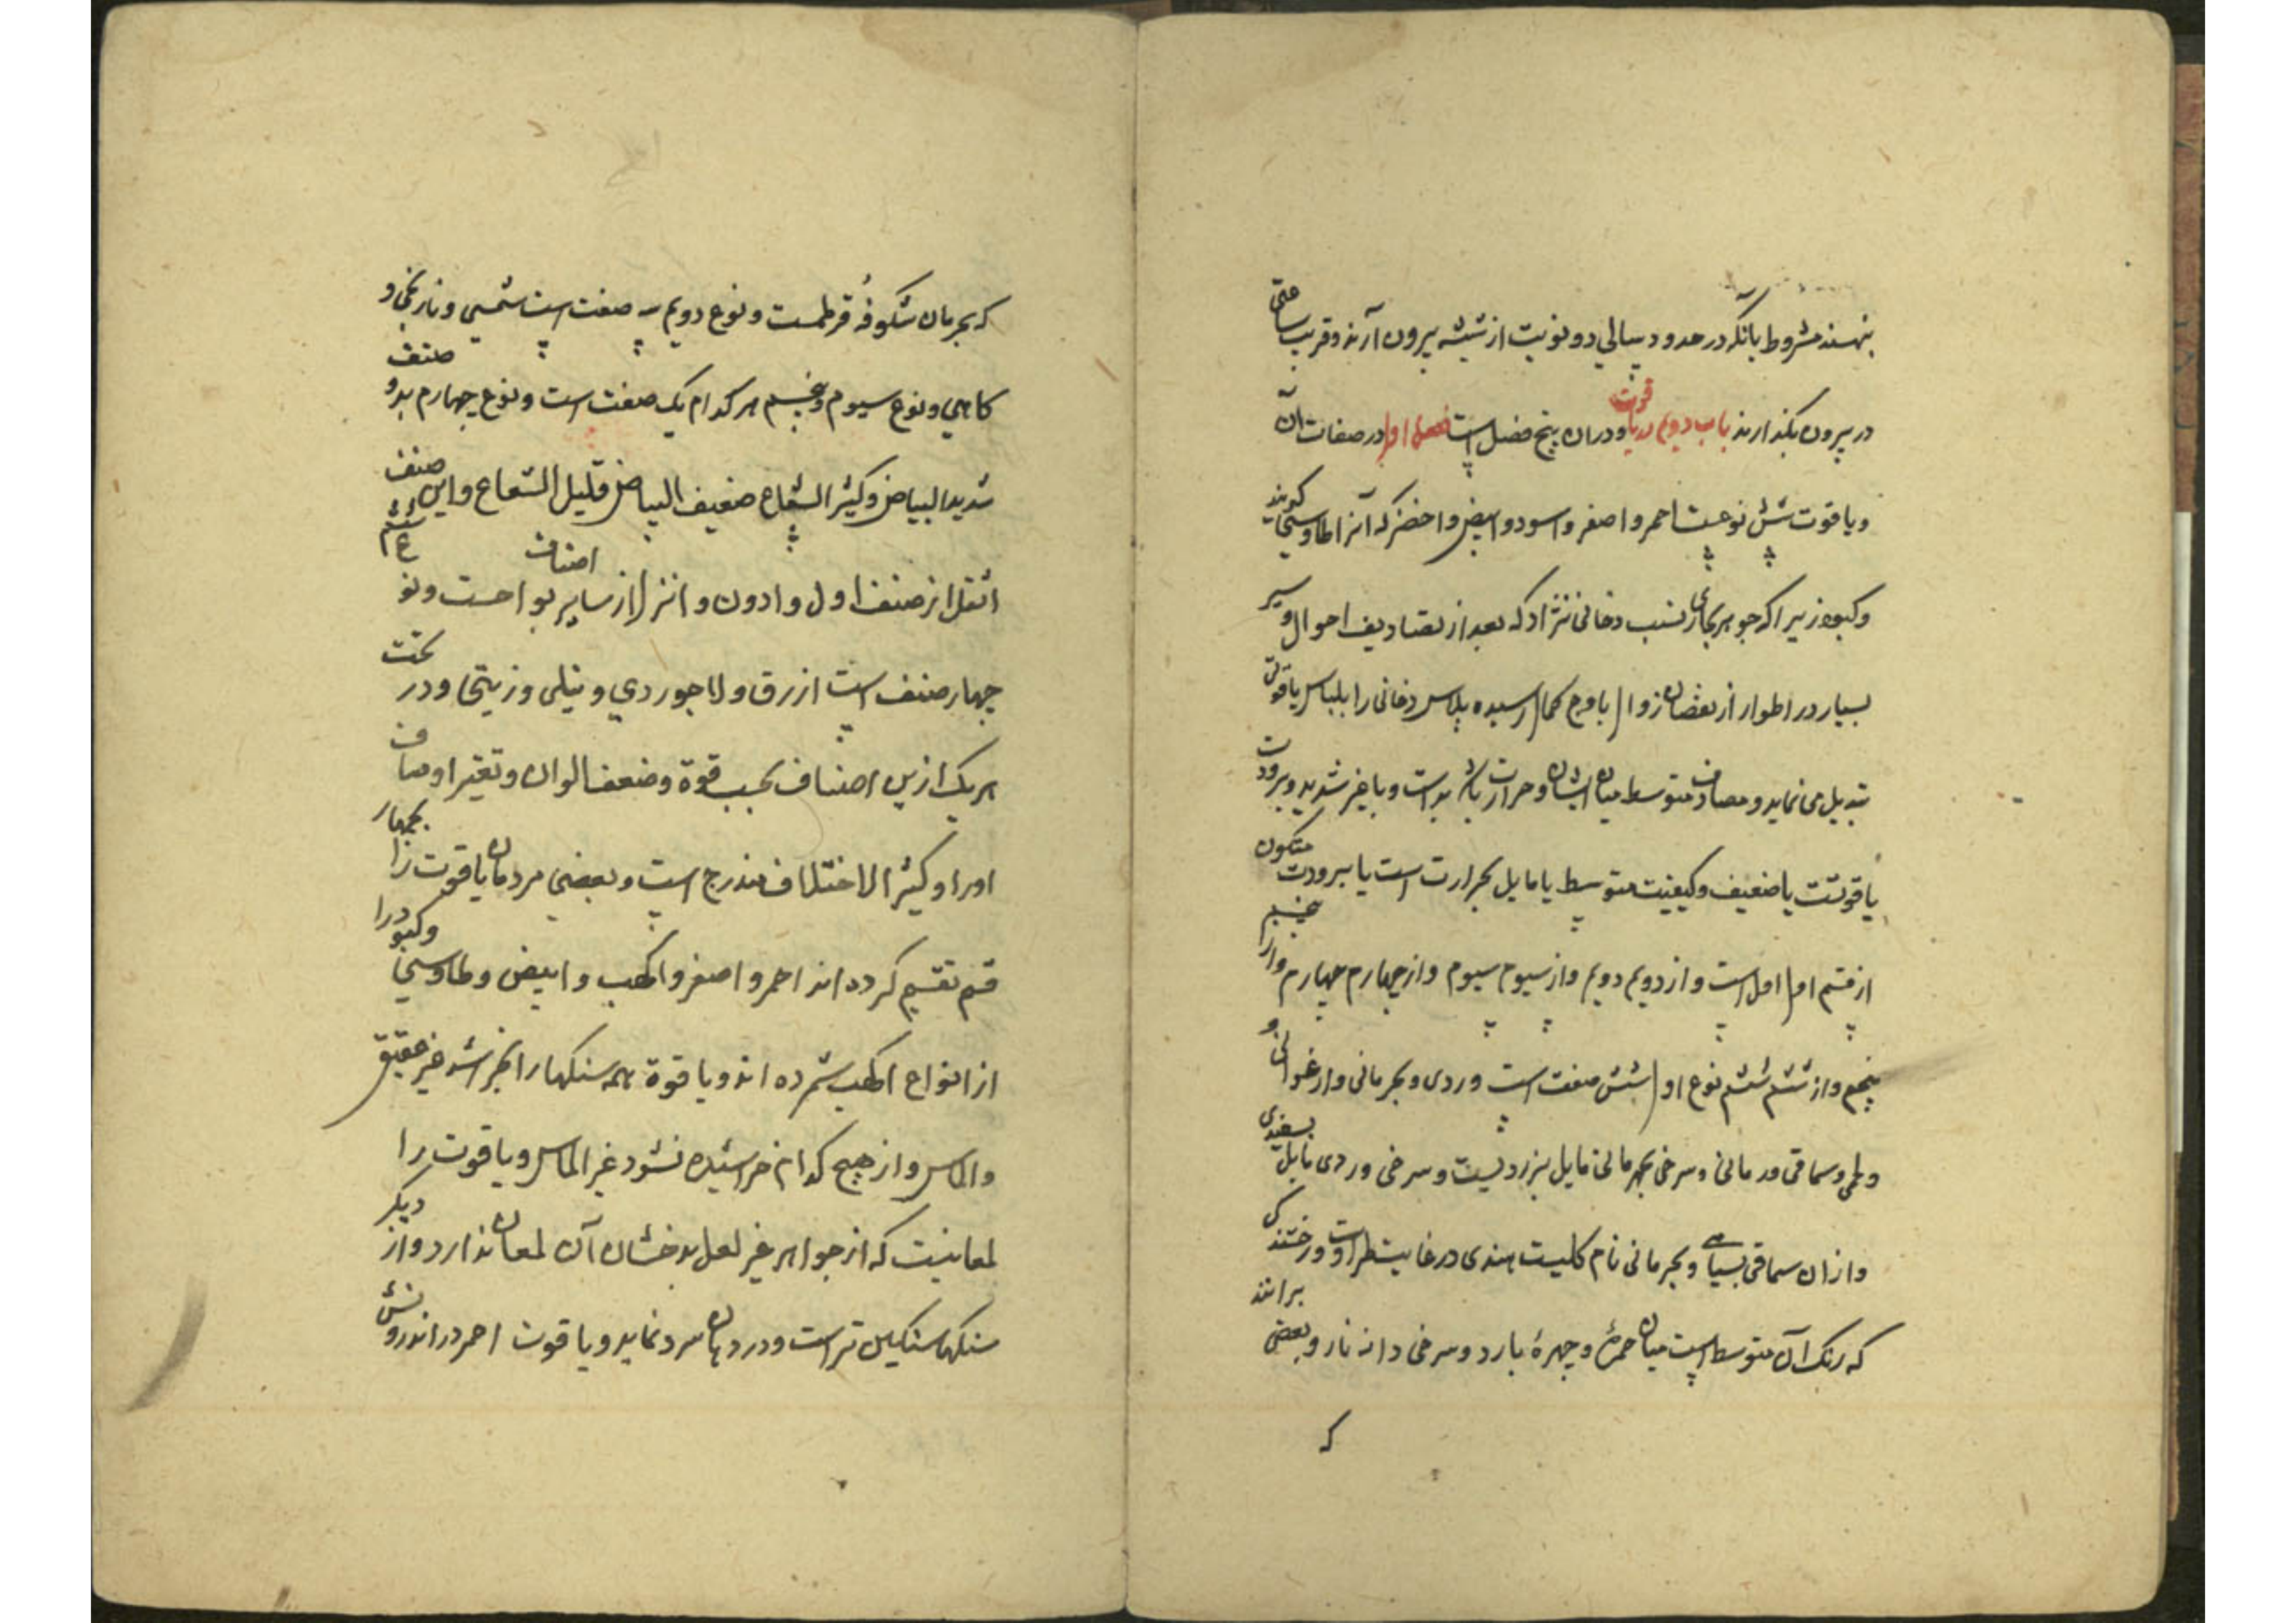 بنهند مشروط بآنکه در حدود سالی دو نوبت از شیشه بیرون آرند و قریب ساعتی
در بیرون بگذارند باب دویم در یاقوت و دران پنج فصل است فصل اول در صفات آن
و یاقوت شش نوعست احمر و اصفر و اسود و ابیض و اخضر که آنرا طاوسی گویند
و کبود زیرا که جوهر بخاری نسب دخانی نژاد که بعد از تصاریف احوال و سیر
بسیار در اطوار از نقصان زوال باوج کمال رسیده پلاس دخانی را بلباس یاقوتی
تبدیل می نماید و مصادف متوسط میان ایشان و حرارت یا شدید است و یا غیر شدید و برودت
یاقوتیت یا ضعیف و کیفیت متوسط یا مایل بحرارت است یا ببرودت متکون
از قسم اول اول است و از دویم دویم و از سیوم سیوم و از چهارم چهارم و از پنجم
پنجم و از ششم ششم نوع اول شش صفت است وردی و بهرمانی و ارغوانی و
و لحمی و سماقی و رمانی و سرخی بهرمانی مایل بزردیست و سرخی وردی مایل بسفیدی
و ازان سماقی بسیاهی و بهرمانی نام گلیست هندی در غایت طراوت و رخشندگی
که رنک آن متوسط است میان حمرة و چهرۀ بارد و سرخی دانه نار و بعضی برانند
که
که بهرمان شکوفۀ قرطمست و نوع دویم سه صفت است شمسی و نارنجی و
کاهی و نوع سیوم و پنجم هر کدام یک صفت است و نوع چهارم بدو صنف
شدید البیاض و کثیر الشعاع ضعیف البیاض قلیل الشعاع و این صنف
اثقل از صنف اول و ادون و انزل از سایر اصناف یواقیت و نوع ششم
چهار صنف است ازرق و لاجوردی و نیلی و زیتی و در تحت
هر یک ازین اصناف بحسب قوة و ضعف الوان و تغیر اوصاف
اورا و کثیر الاختلاف مندرج است و بعضی مردمان یاقوت را بچهار
قسم تقسیم کرده اند احمر و اصفر و اکهب و ابیض و طاوسی و کبود را
از انواع اکهب شمرده اند و یاقوة همه سنکها را بخراشد غیر عقیق
والماس و از هیچ کدام خراشیده نشود غیر الماس و یاقوت را
لمعانیت که از جواهر غیر لعل بدخشان آن لمعان ندارد و از دیکر
سنکها سنکین تر است و در دهان سرد نماید و یاقوت احمر در اندرونش